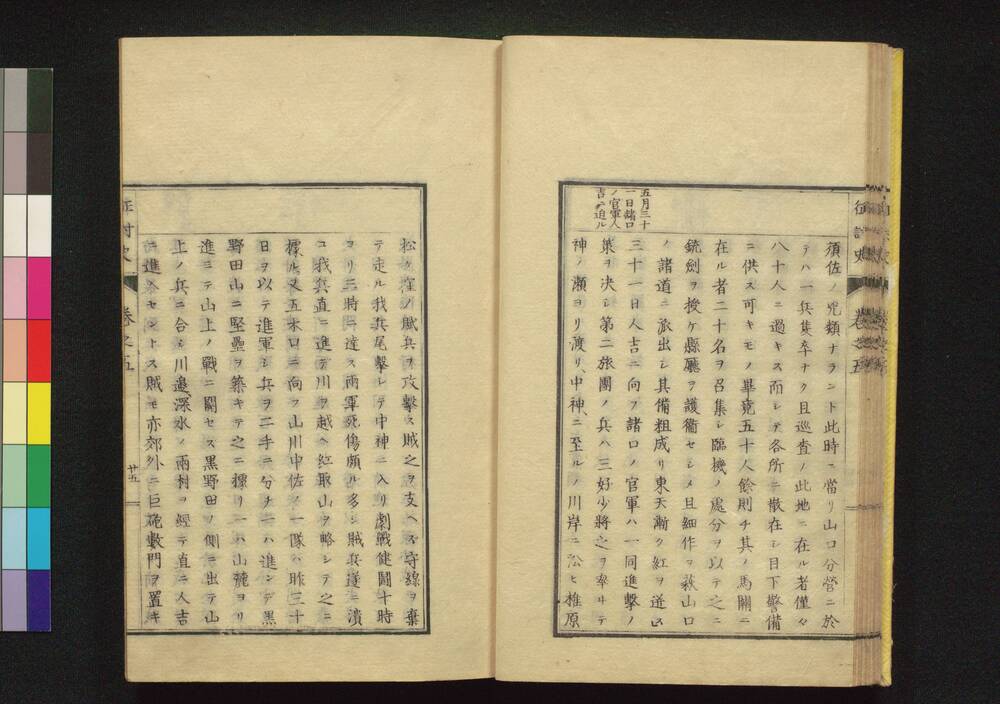 須佐ノ兇類ナラント此時ニ當リ山口分營ニ於
テハ一兵隻卒ナク且巡査ノ此地ニ在ル者僅々
八十人ニ過キス而シテ各所ニ散在シ目下警備
ニ供ス可キモノ畢竟五十人餘則チ其ノ馬關ニ
在ル者二十名ヲ召集シ臨機ノ處分ヲ以テ之ニ
銃劍ヲ授ケ縣廳ヲ護衞セシメ且細作ヲ萩山口
ノ諸道ニ派出シ其備粗成リ東天漸ク紅ヲ迸ス
五月三十
一日諸口
ノ官軍人
吉ニ迫ル
三十一日人吉ニ向フ諸口ノ官軍ハ一同進擊ノ
策ヲ決シ第二旅團ノ兵ハ三好少將之ヲ率ヰテ
神ノ瀬ヨリ渡リ中神ニ至ルノ川岸ニ沿ヒ椎原
松ケ窪ノ賊兵ヲ攻擊ス賊之ヲ支ヘス守線ヲ棄
テ走ル我兵尾擊シテ中神ニ入リ劇戰健鬪十時
ヨリ三時ニ達ス兩軍死傷頗ル多シ賊兵遂ニ潰
ユ我兵直ニ進テ川ヲ越ヘ紅取山ヲ略シテ之ニ
據ル又五木口ニ向フ山川中佐ノ一隊ハ昨三十
日ヲ以テ進軍シ兵ヲ二手ニ分チ一ハ進ンデ黑
野田山ニ堅壘ヲ築キテ之ニ據リ一ハ山麓ヨリ
進ミテ山上ノ戰ニ關セス黑野田ノ側ニ出テ山
上ノ兵ニ合シ川邊深水ノ兩村ヲ經テ直ニ人吉
ニ進入セントス賊モ亦郊外ニ巨砲數門ヲ置キ
征討史
卷之五
廿五